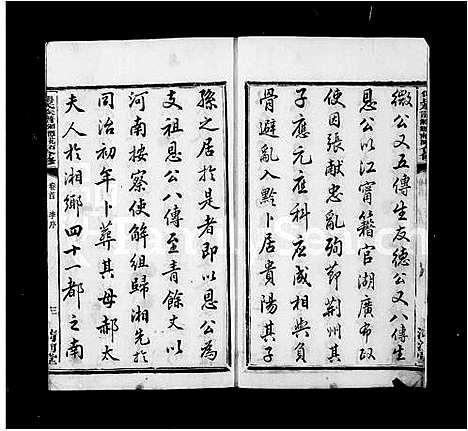 微公又五傳生友德公又八傳生
恩公以江甯籍官湖廣布政
使因張献忠亂殉節荆州其
子應元應科應咸相與負
骨避亂入黔卜居貴陽其子
孫之居於是者即以恩公為
支祖恩公八傳至青餘丈以
河南按察使解組歸湘先於
同治初年卜葬其母郝太
夫人於湘鄉四十一都之南
卷首 李序 三